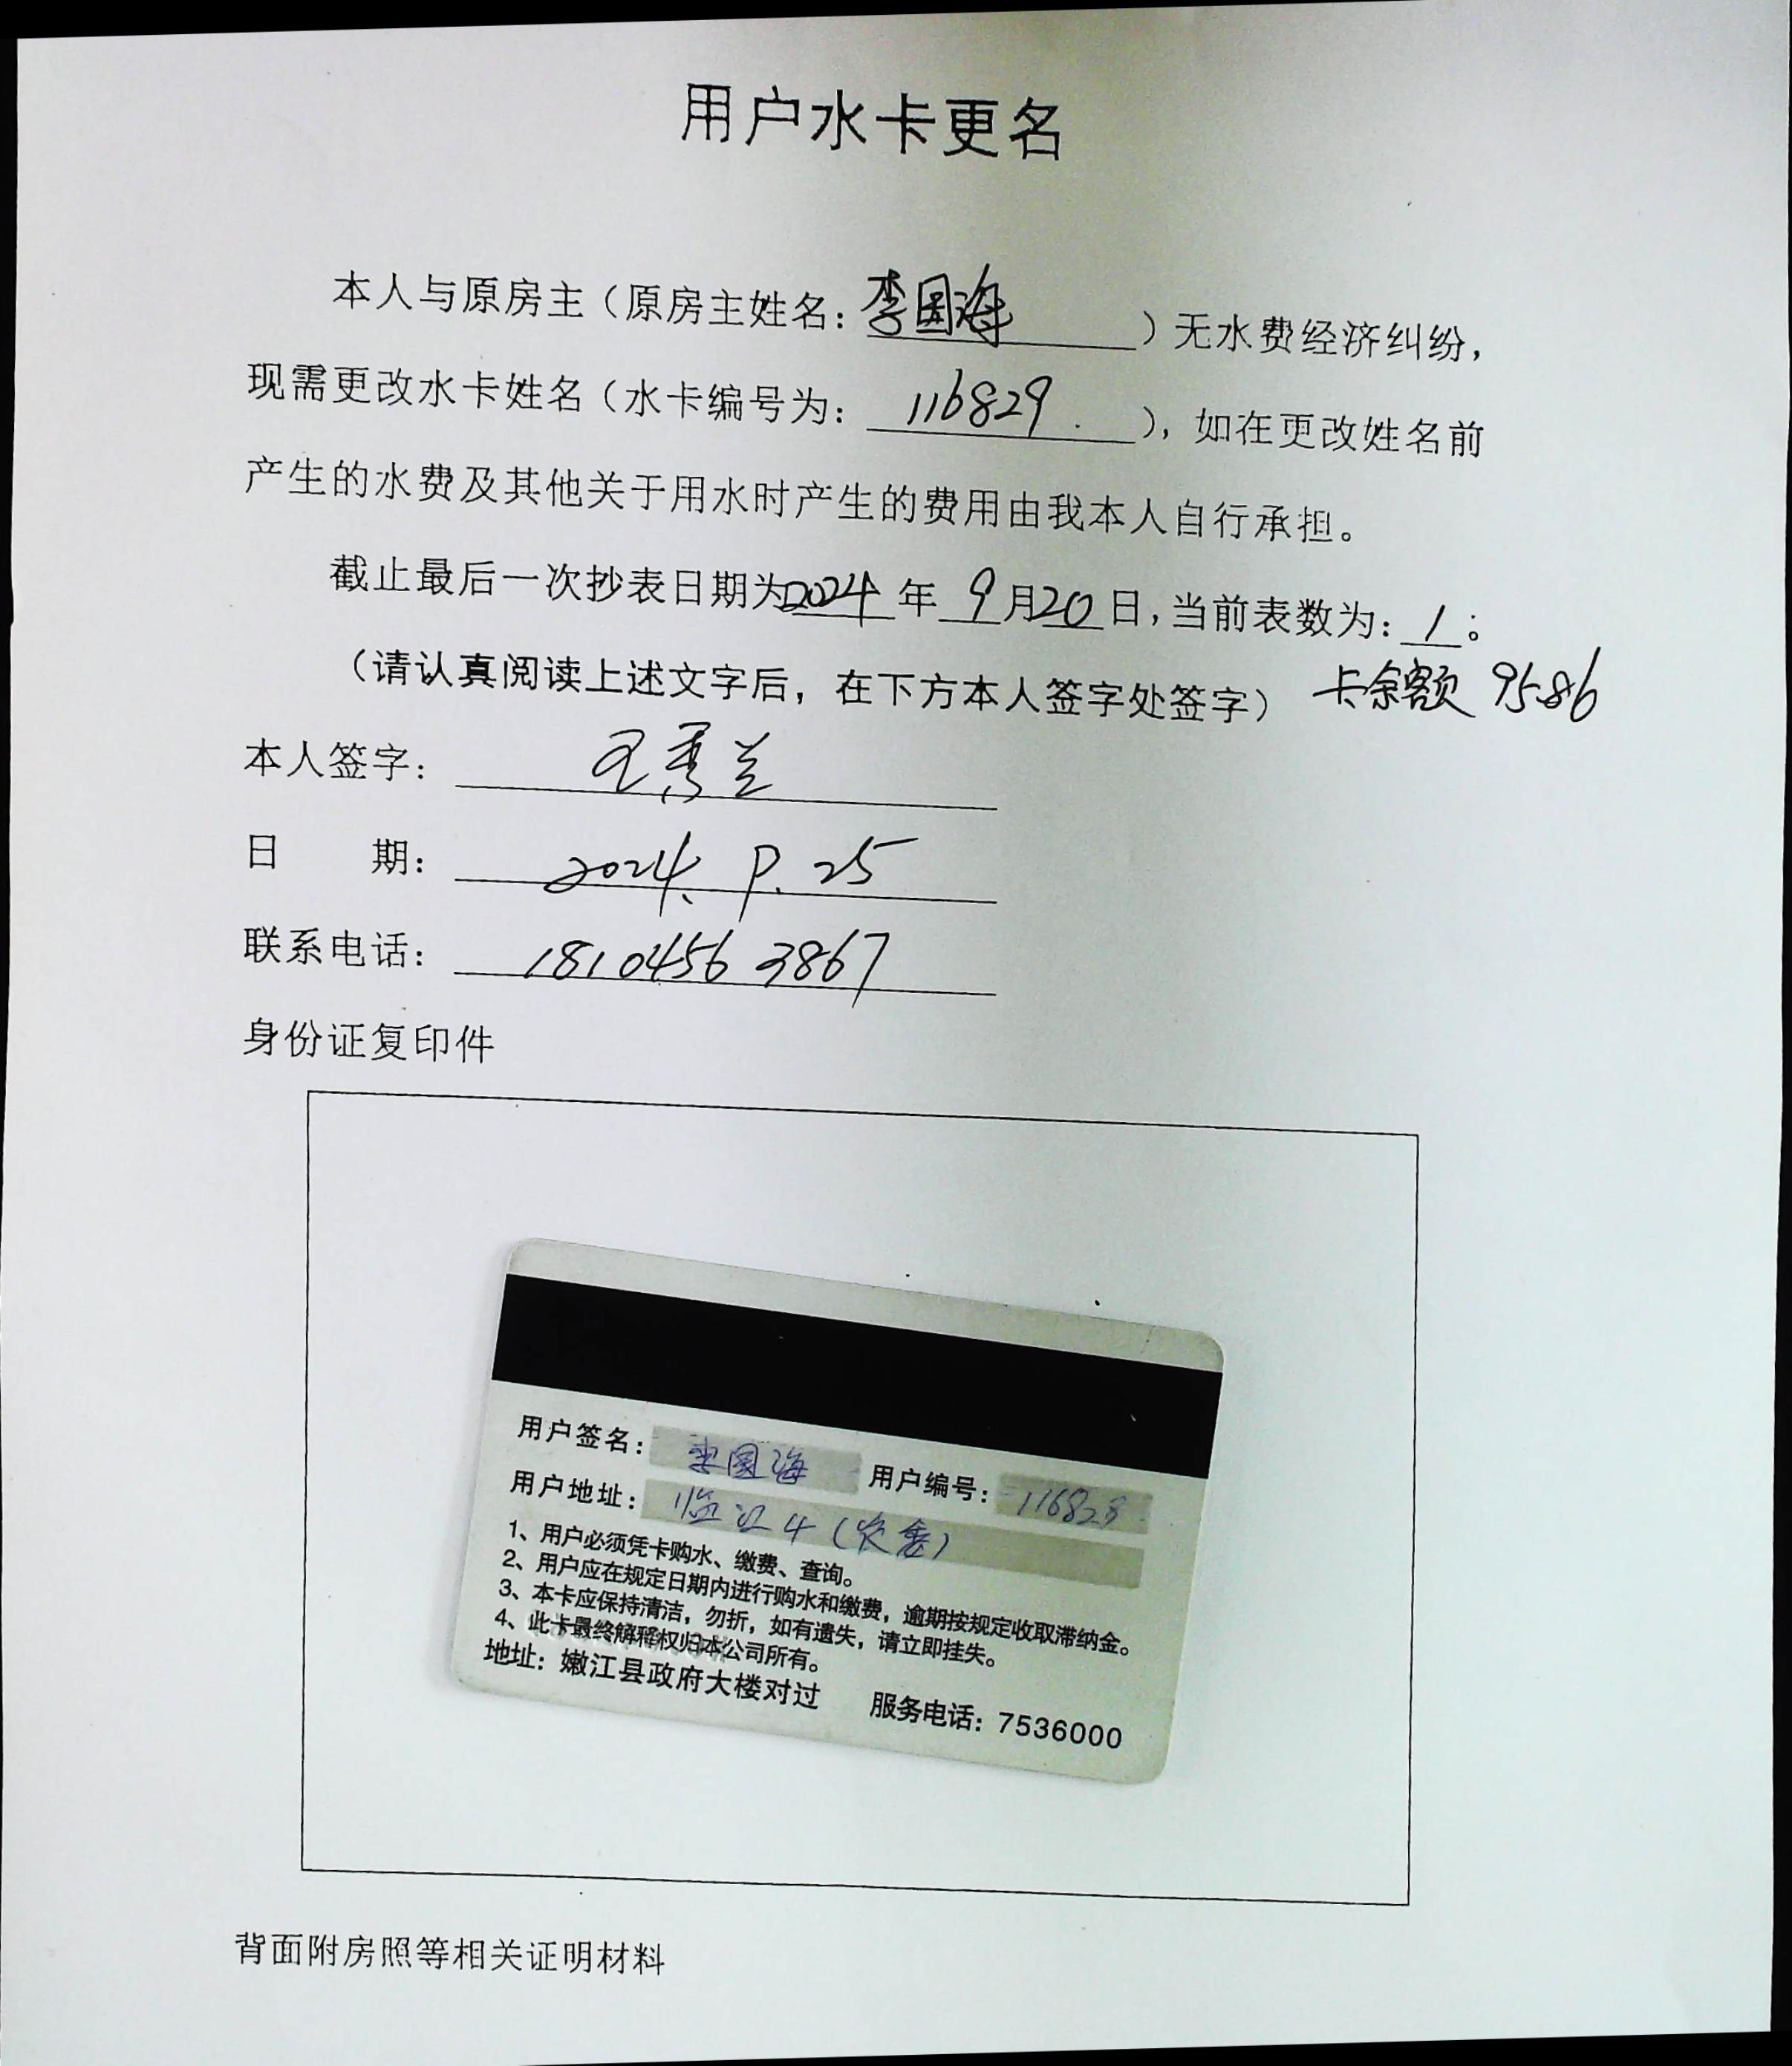 用户水卡更名
本人与原房主（原房主姓名：李国海）无水费经济纠纷，
现需更改水卡姓名（水卡编号为：116829），如在更改姓名前
产生的水费及其他关于用水时产生的费用由我本人自行承担。
截止最后一次抄表日期为2024年9月20日，当前表数为：1。
（请认真阅读上述文字后，在下方本人签字处签字） 卡余额 95.86
本人签字：王秀兰
日 期：2024. 9. 25
联系电话：18104563867
身份证复印件
用户签名：李国海 用户编号：
用户地址：临江4（农委）
1、用户必须凭卡购水、缴费、查询。
2、用户应在规定日期内进行购水和缴费，逾期按规定收取滞纳金。
3、本卡应保持清洁，勿折，如有遗失，请立即挂失。
4、此卡最终解释权归本公司所有。
地址：嫩江县政府大楼对过 服务电话：7536000
背面附房照等相关证明材料